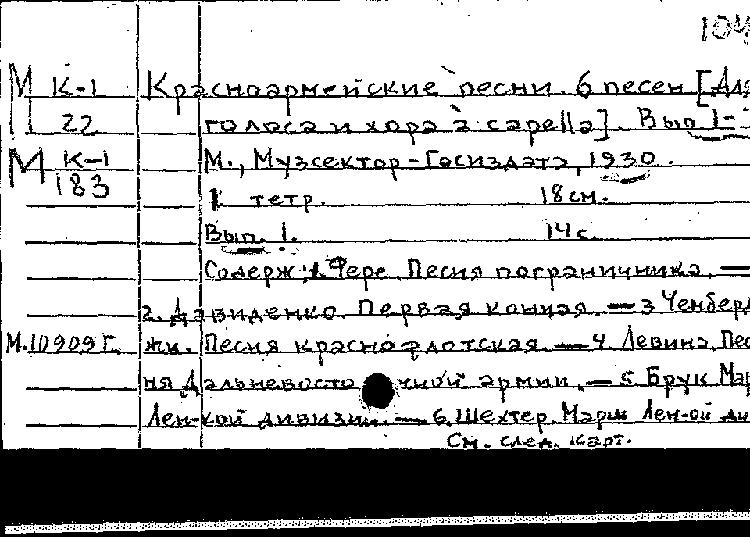 104
М К-1 Красноармейские песни. 6 песен [Для
П 22 голоса и хора a capella]. Вып. 1-
М К-1 М., Музсектор-Госиздата, 1930.
183
1 тетр. 18 см.
Вып. 1. 14 с.
Содерж.: 1. Фере. Песня пограничника. —
2. Давиденко. Первая конная. — 3. Чемберд
М.10909г. жи. Песня краснофлотская. — 4. Левина. Пес
ня Дальневосточной армии. — 5. Брук. Мар
Лен-кой дивизии. — 6. Шехтер. Марш Лен-ой ди
См. след. карт.